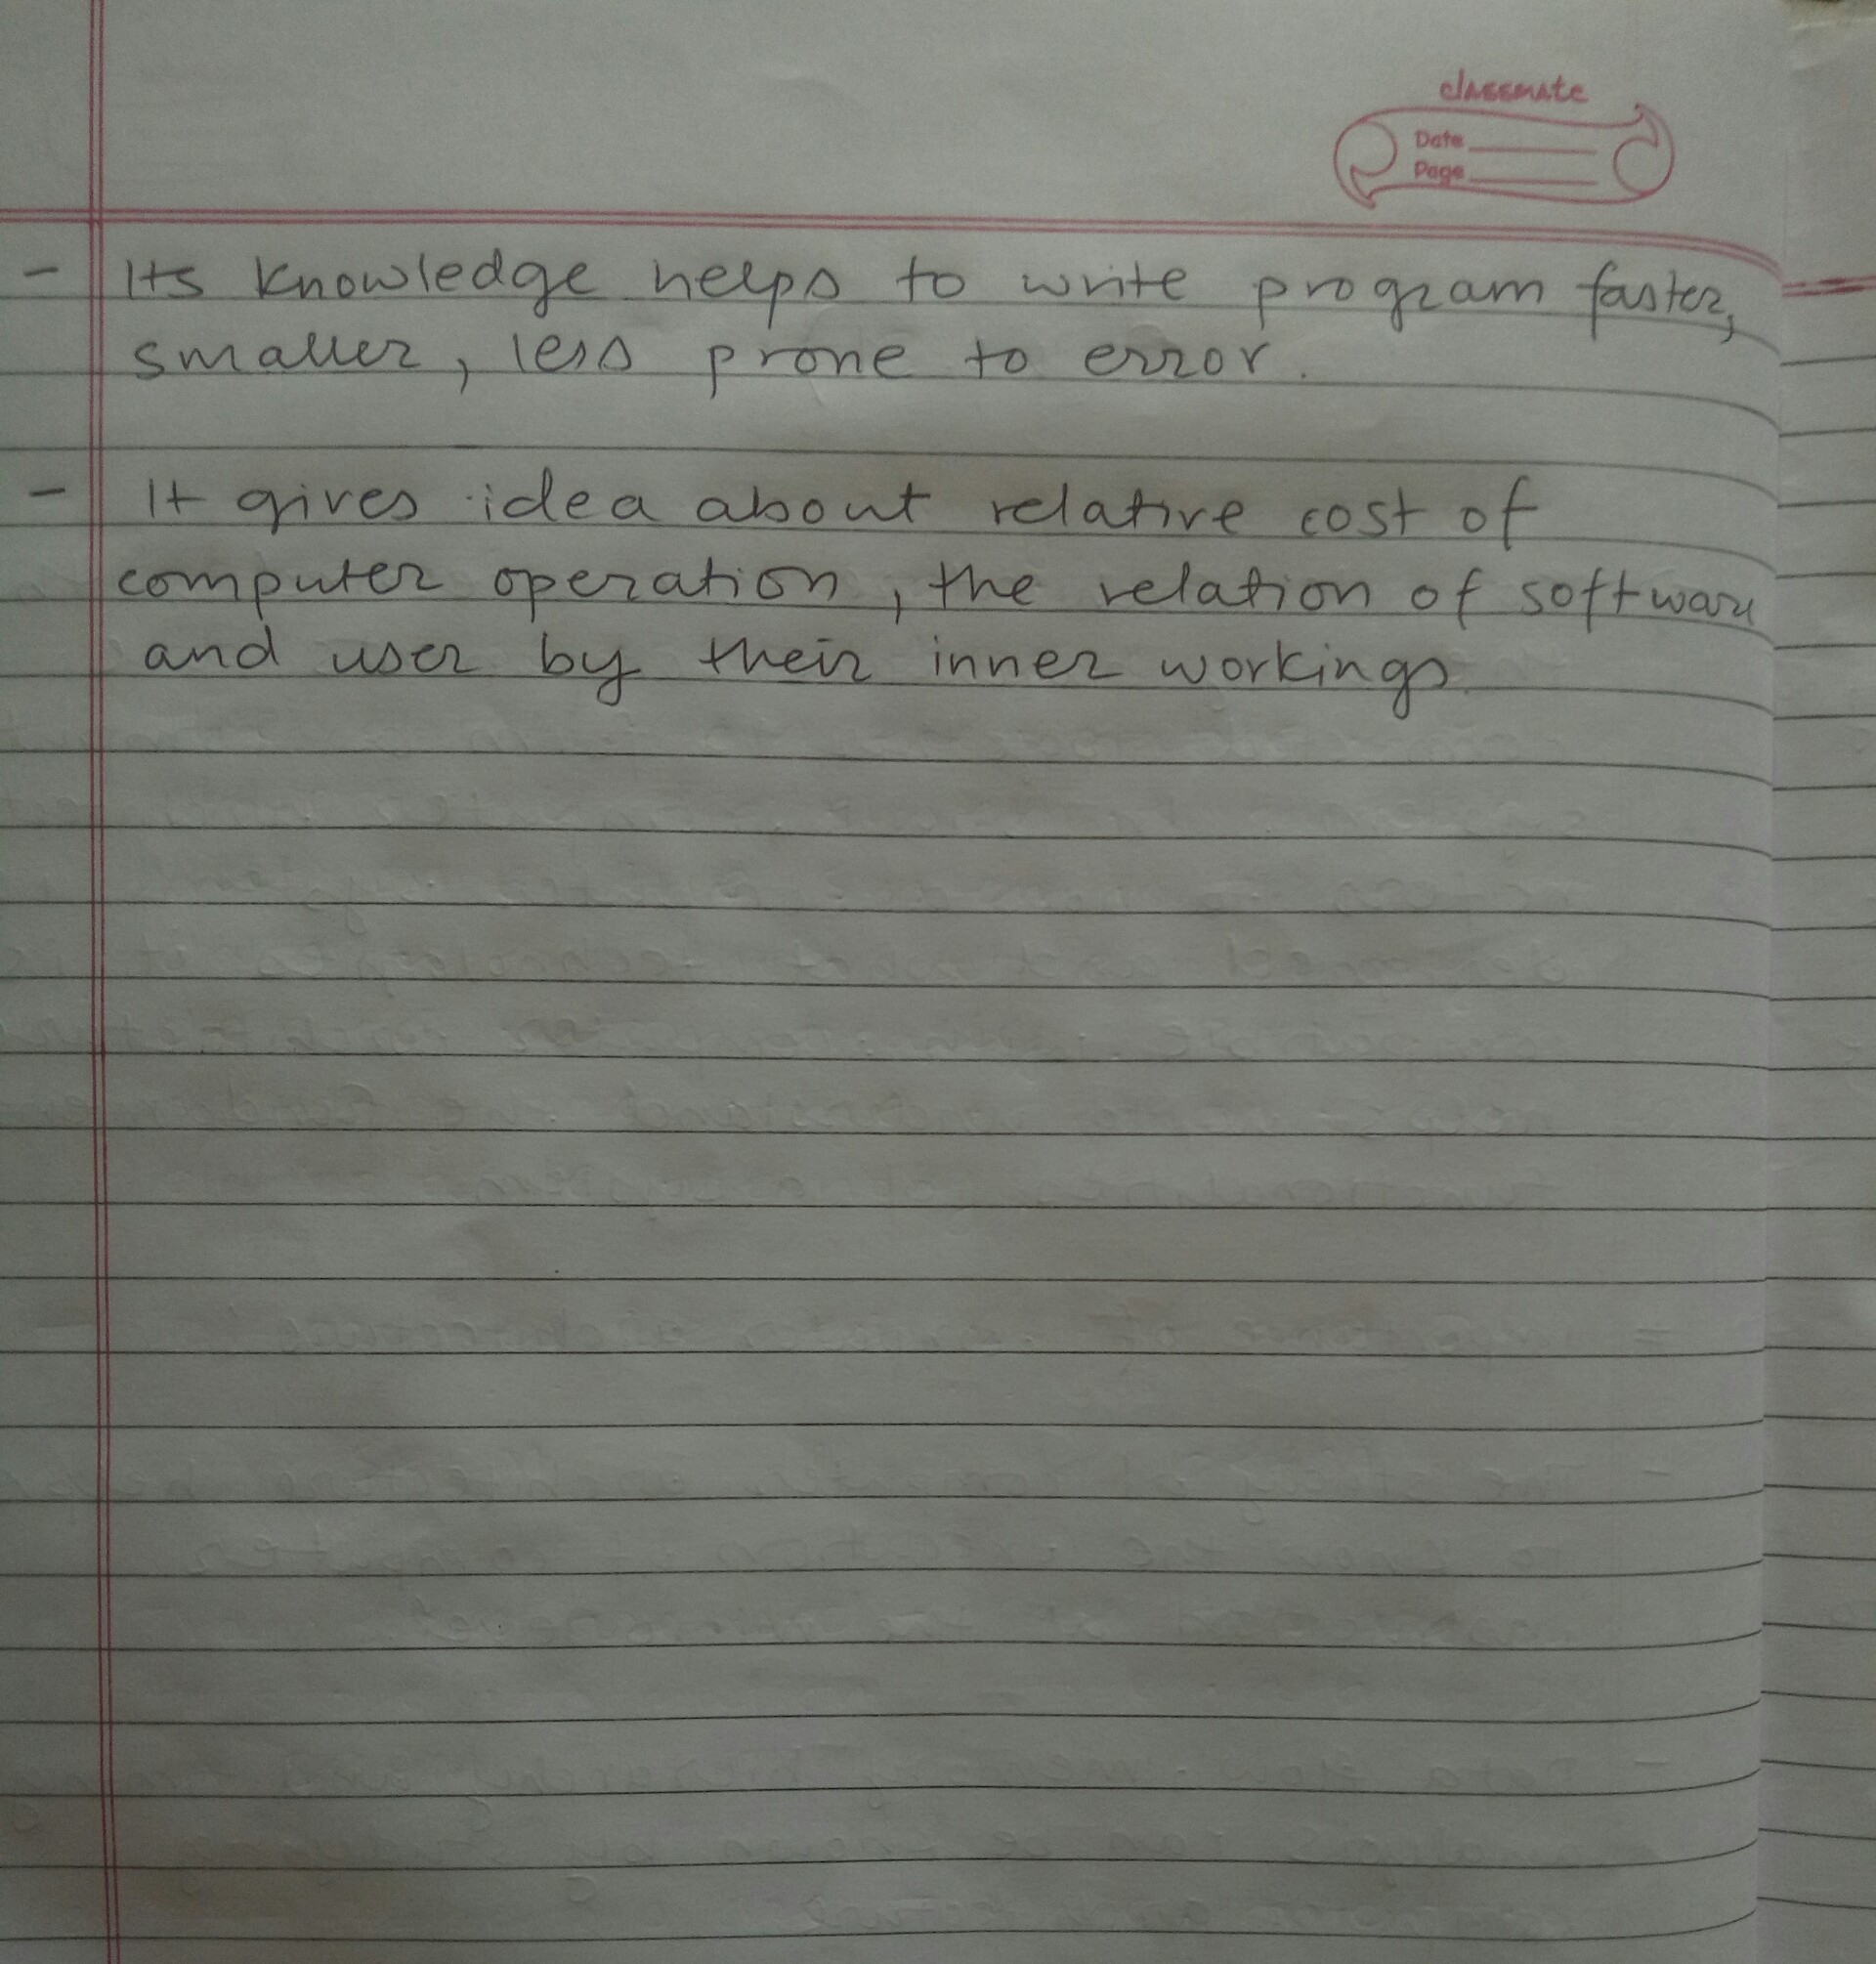 classmate
Date
Page
- Its knowledge helps to write program faster,
smaller, less prone to error.
- It gives idea about relative cost of
computer operation, the relation of software
and user by their inner workings.